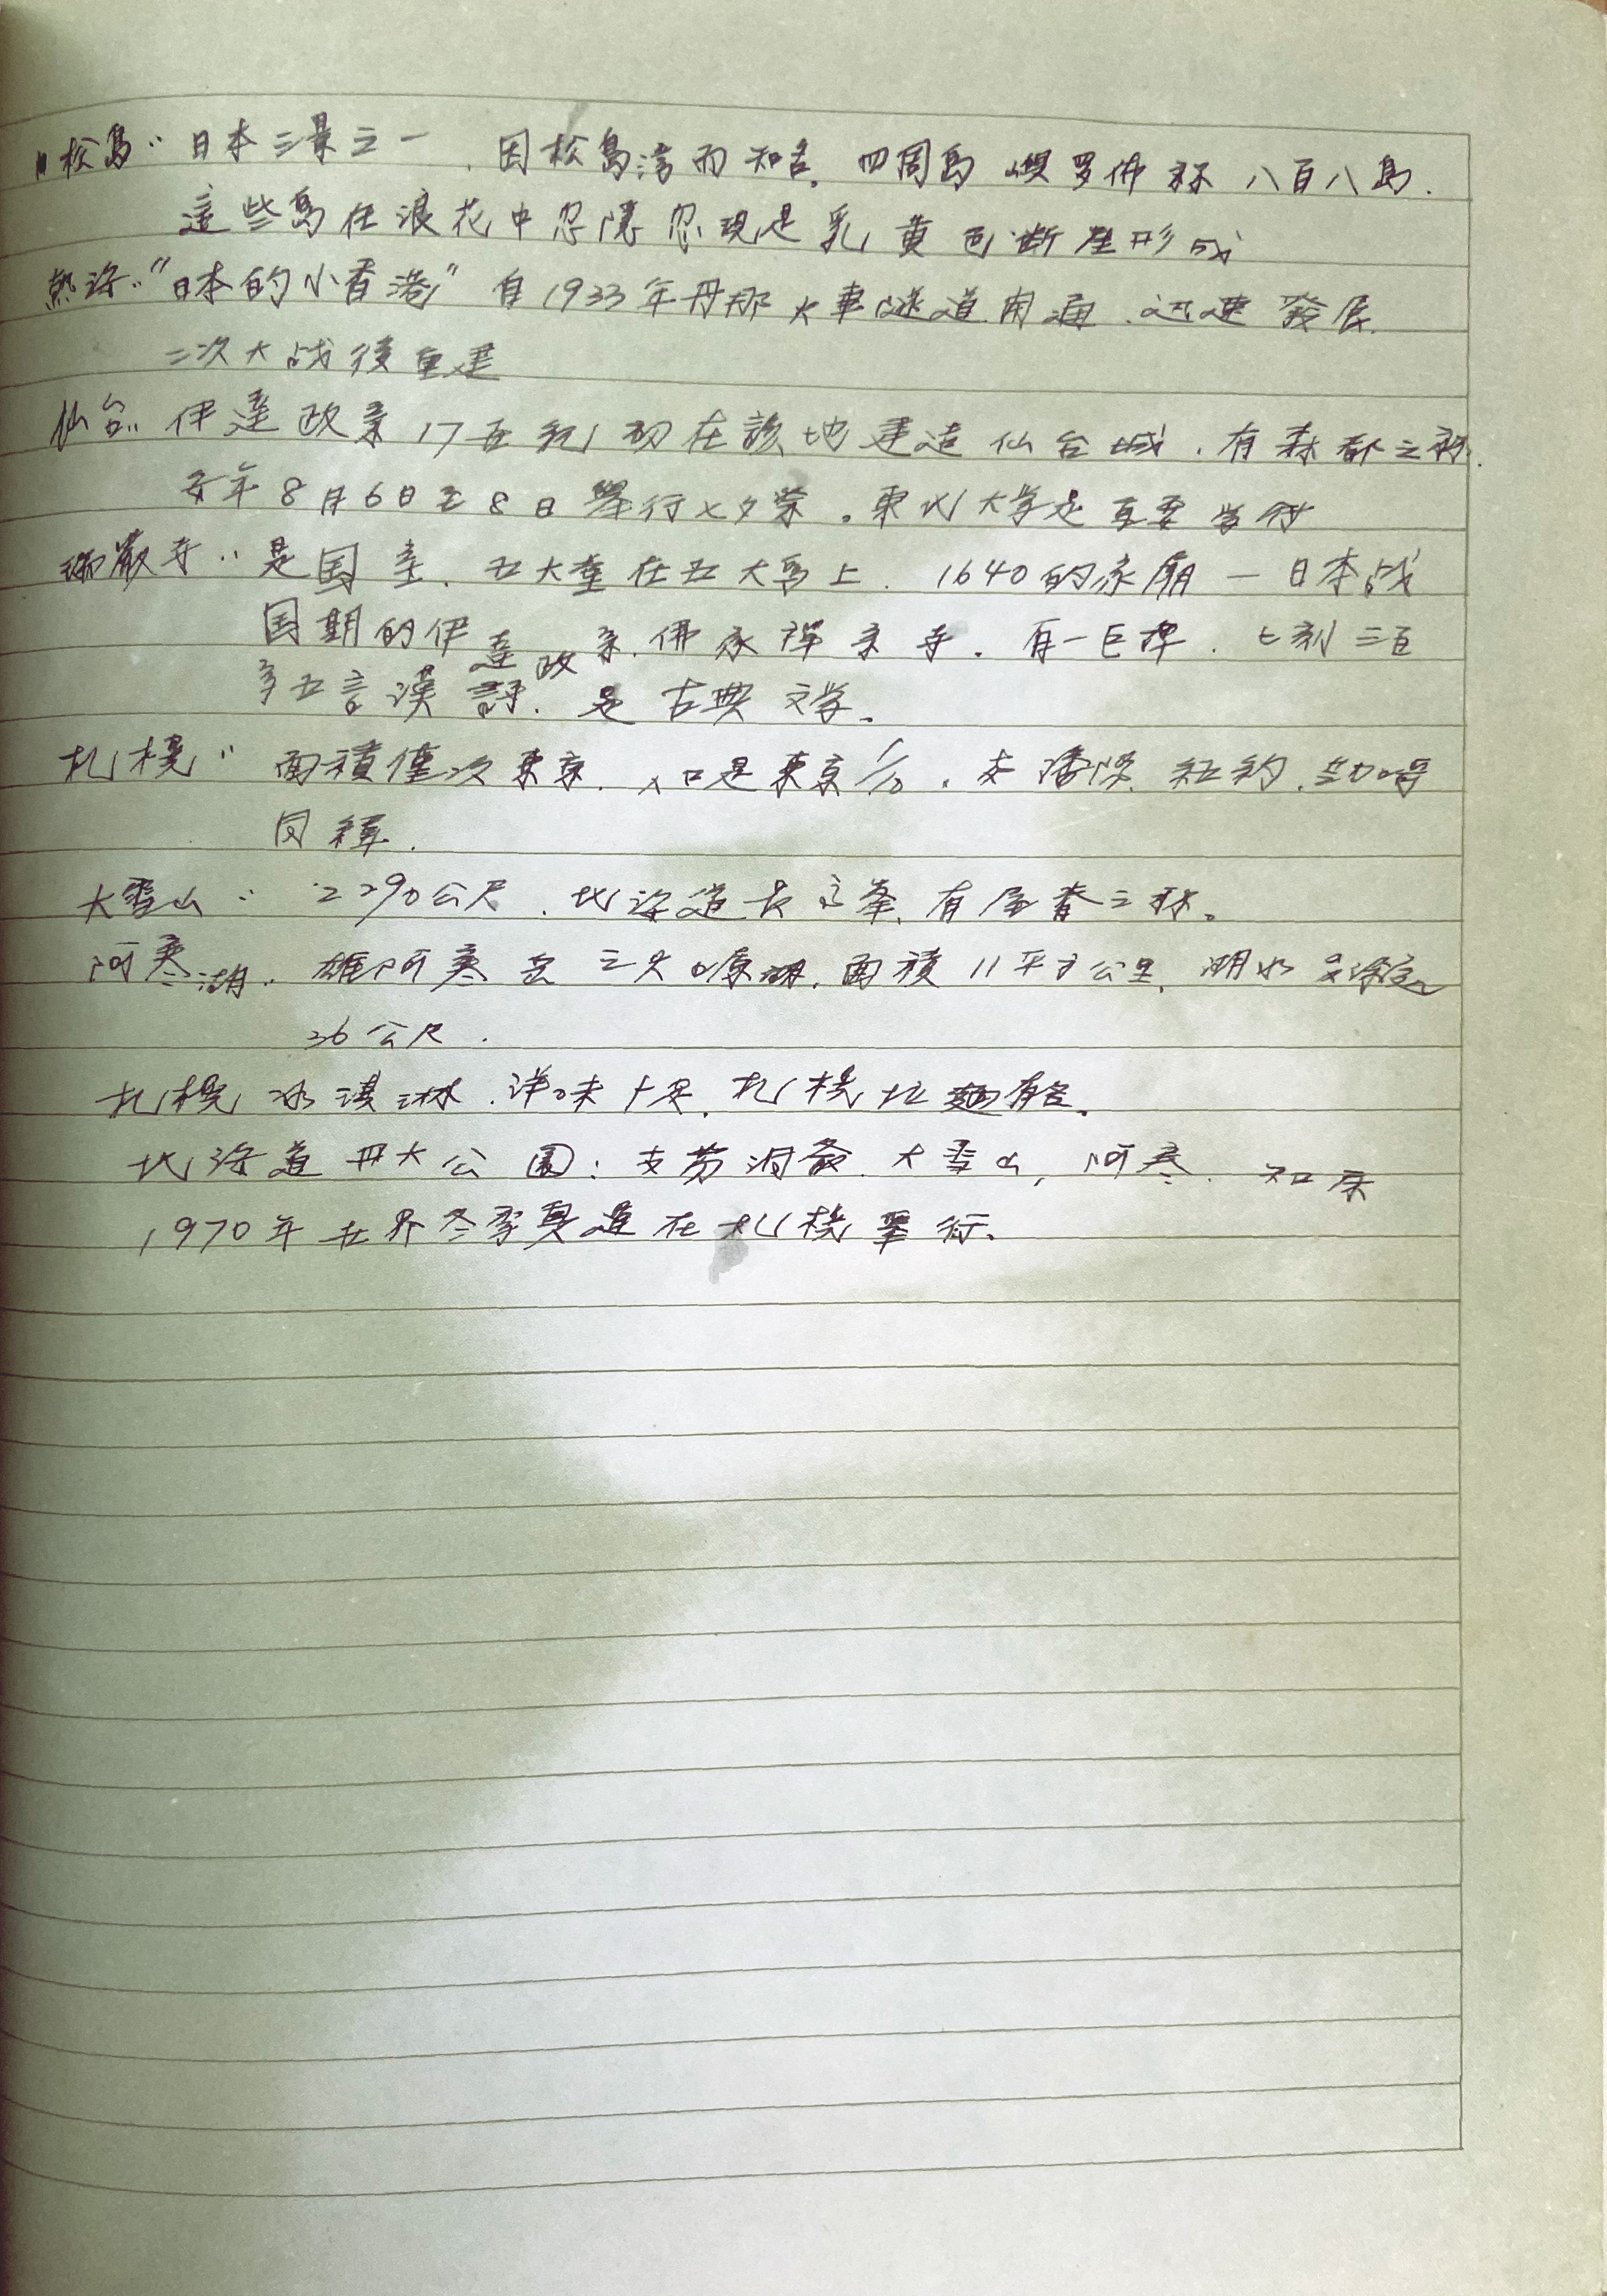 松島: 日本三景之一, 因松島湾而知名. 四周島嶼罗佈称八百八島.
這些島在浪花中忽隱忽現是乳黄色断崖形成
熱海: "日本的小香港" 自1933年丹那火車隧道開通. 迅速發展.
二次大战後重建
仙台: 伊達政宗17世紀初在該地建造仙台城. 有森都之称.
每年8月6日至8日舉行七夕祭. 東北大学是重要学府
瑞巖寺: 是国宝. 五大堂在五大島上. 1640的家廟 — 日本战
国期的伊達政宗. 佛家禅宗寺. 有一巨碑. 上刻三百
多五言漢詩. 是古典文学.
札幌: 面積僅次東京. 人口是東京1/10.
同緯.
大雪山: 2290公尺. 北海道最高峯. 有屋脊之称.
阿寒湖: 雄阿寒岳之火口原湖. 面積11平方公里. 湖水最深
36公尺.
札幌冰淇淋. 洋味十足. 札幌拉麵有名.
北海道四大公園: 支笏洞爺. 大雪山, 阿寒. 知床
1970年世界冬季奥運在札幌舉行.